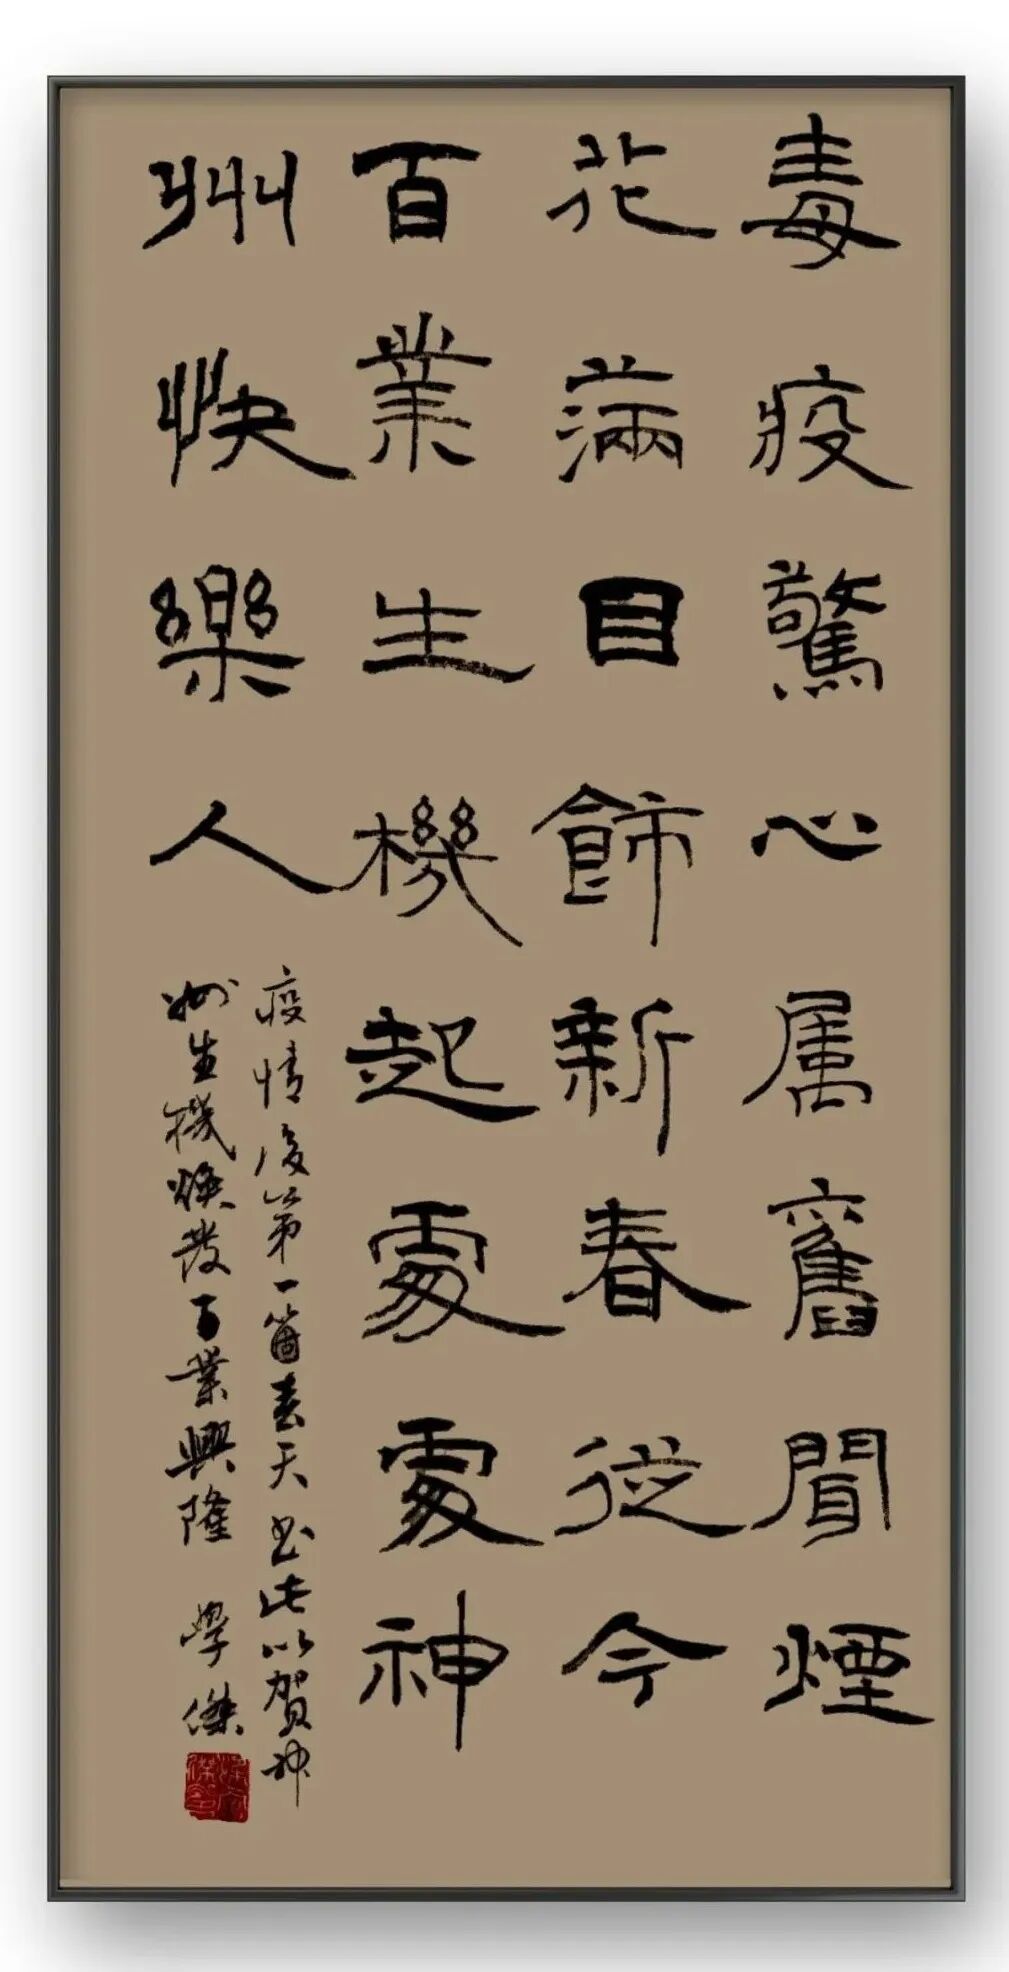 毒疫驚心属舊聞煙
花滿目飾新春從今
百業生機起處處神
州快樂人
疫情後第一箇春天书此以賀神
州生機煥發百業興隆 學傑